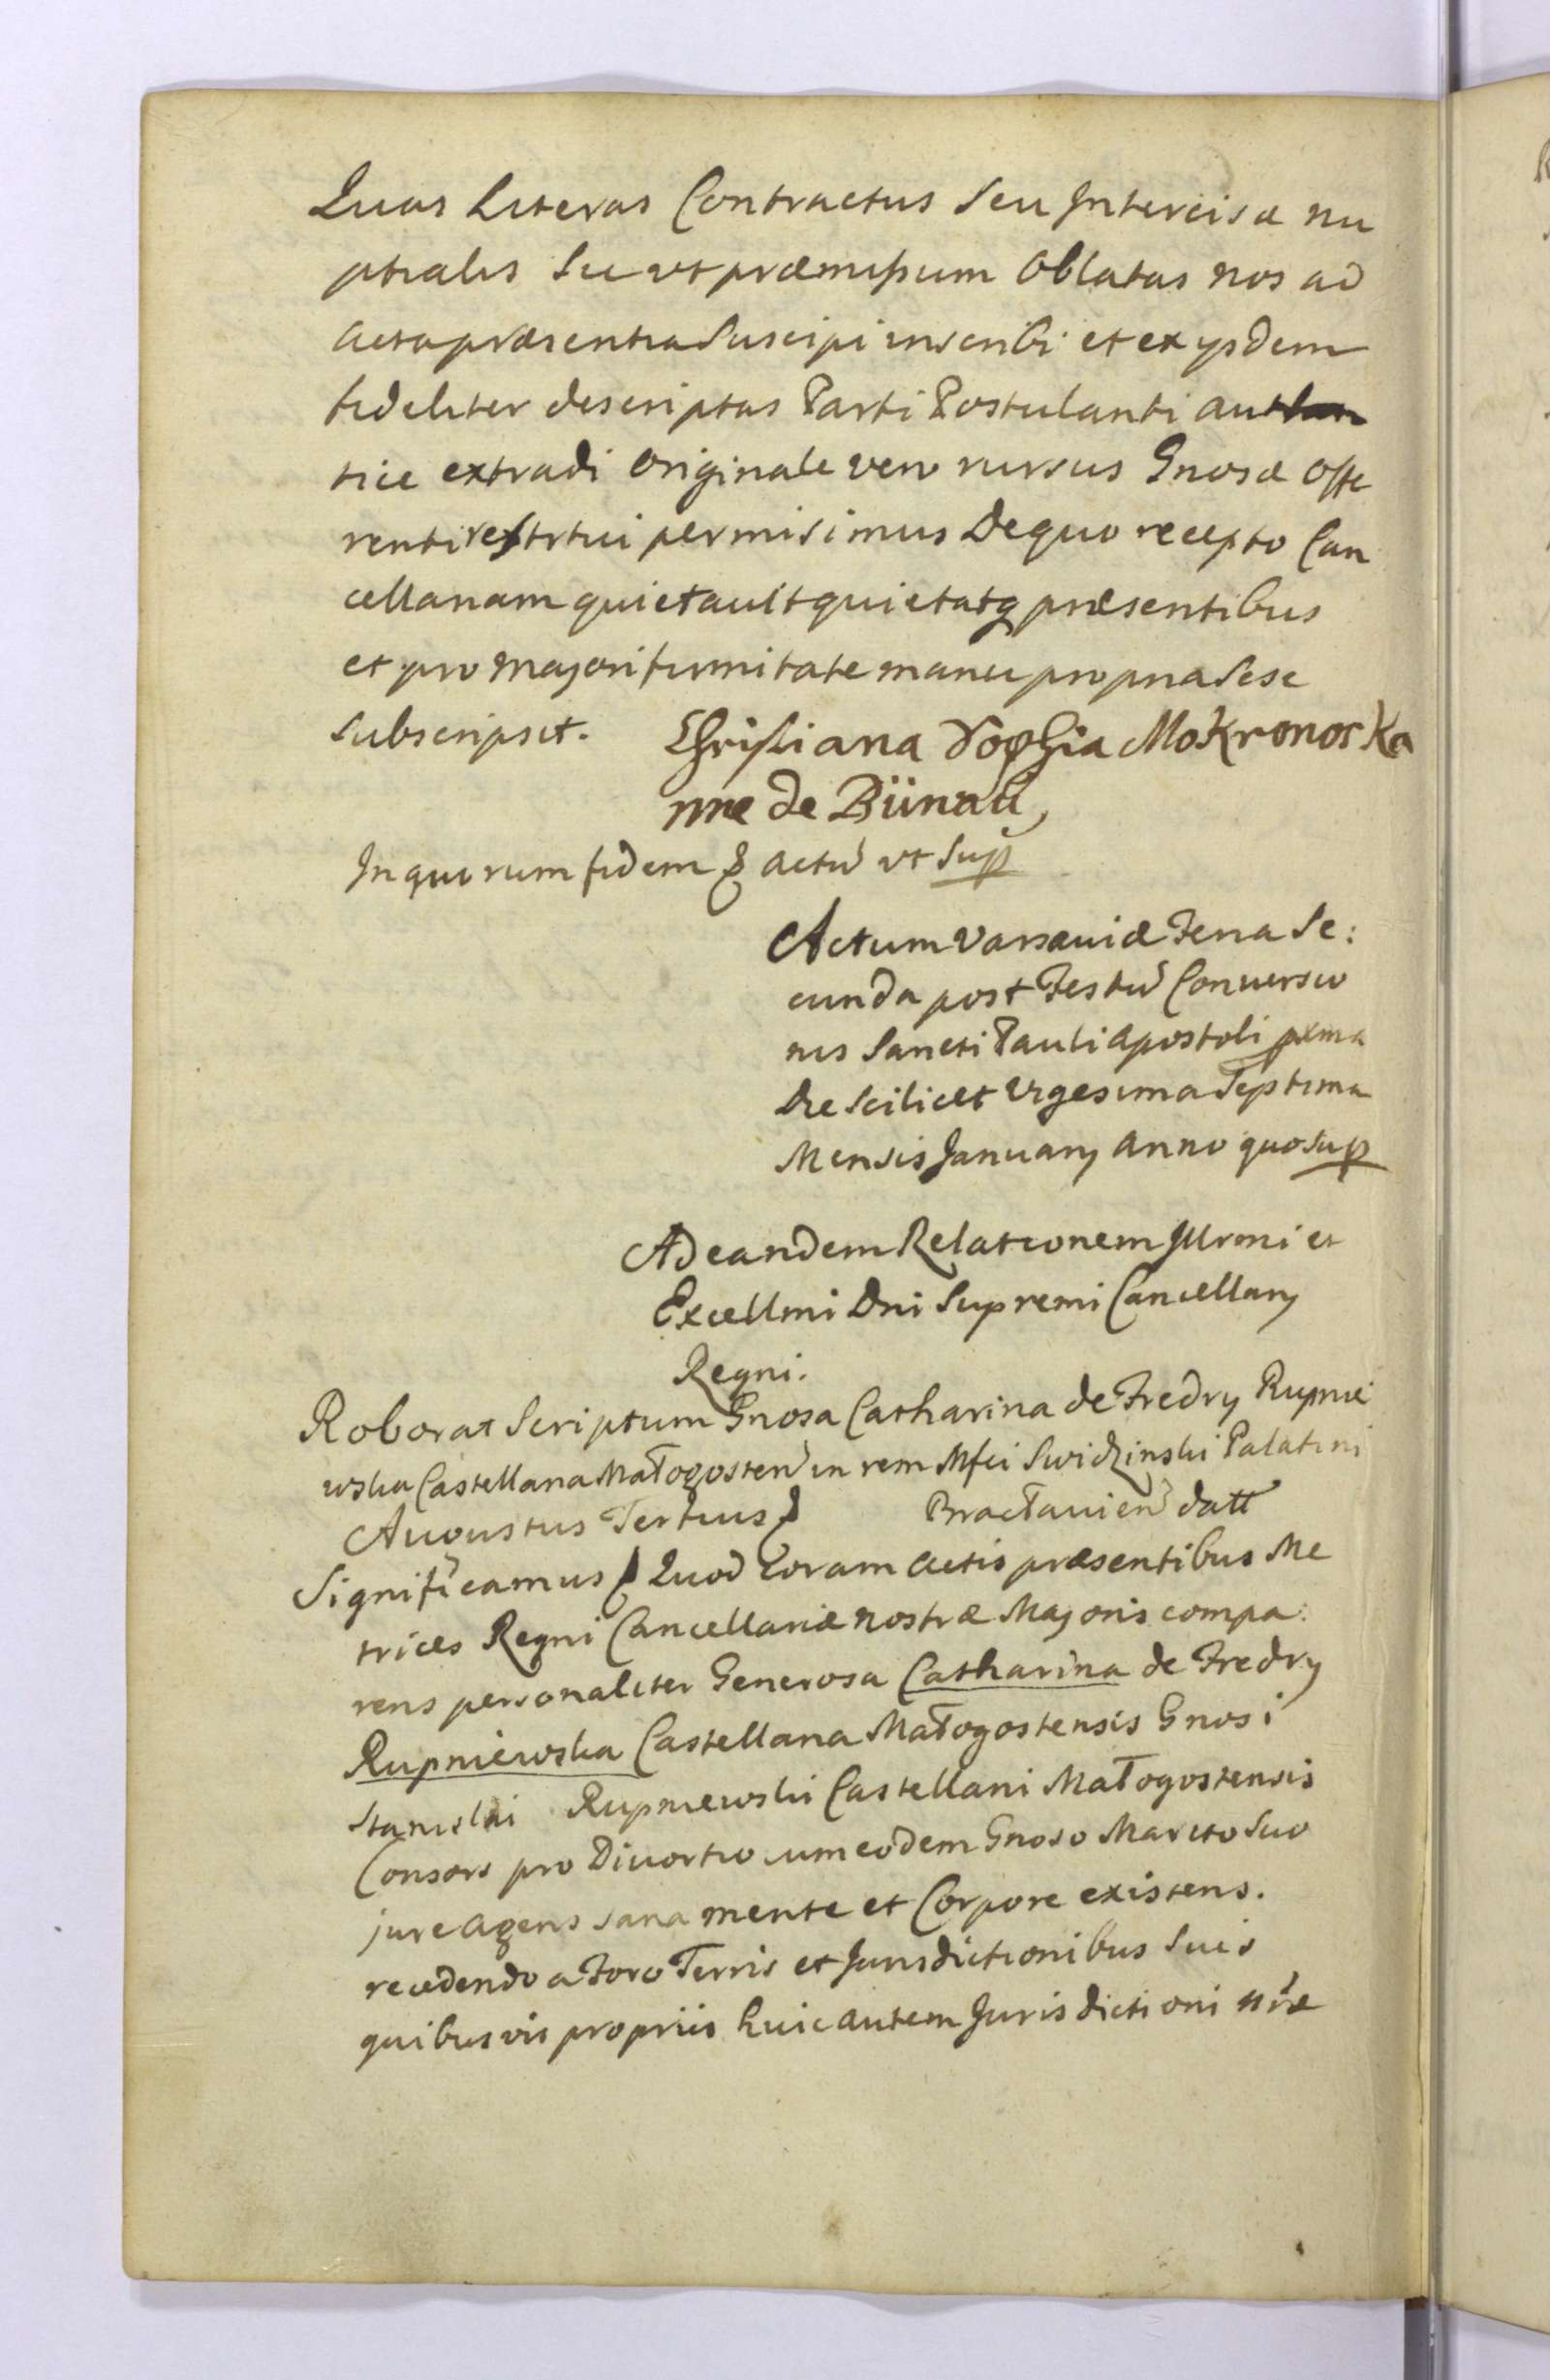 Quas Literas Contractus Seu Intercisæ nu
ptialis Sic vt præmissum Oblatas nos ad
acta præsentia Suscipi inscribi et ex ysdem
fideliter descriptas Parti Postulanti authen
tice extradi Originale vero rursus Gnosæ offe
renti restitui permisimus De quo recepto Can
cellariam quietauit quietatq præsentibus
et pro majori firmitate manu propria Sese
Subscripsit. Christiana Sophia Mokronoska
nne de Bünau,
In quorum fidem & actu vt Sup
Actum Varsauiæ Feria Se:
cunda post Festu Conuersio
nis Sancti Pauli Apostoli pxma
Die Scilicet Vigesima Septima
Mensis January Anno quo Sup
Ad eandem Relationem Illrmi et
Excellmi Dni Supremi Cancellary
Regni.
Roborat Scriptum Gnosa Catharina de Fredry Rupnie
wska Castellana Małogosten in rem Mfci Swidzinski Palatini
Augustus Tertius & Bracłauien datt
Significamus & Quod Coram Actis præsentibus Me
trices Regni Cancellariæ nostræ Majoris compa:
rens personaliter Generosa Catharina de Fredry
Rupniewska Castellana Małogostensis Gnosi
Stanislai Rupniewski Castellani Małogostensis
Consors pro Diuortio cum eodem Gnoso Marito Suo
jure agens sana mente et Corpore existens.
recedendo a Foro Terris et Jurisdictionibus Suis
quibusvis propriis huic autem Jurisdictioni nræ